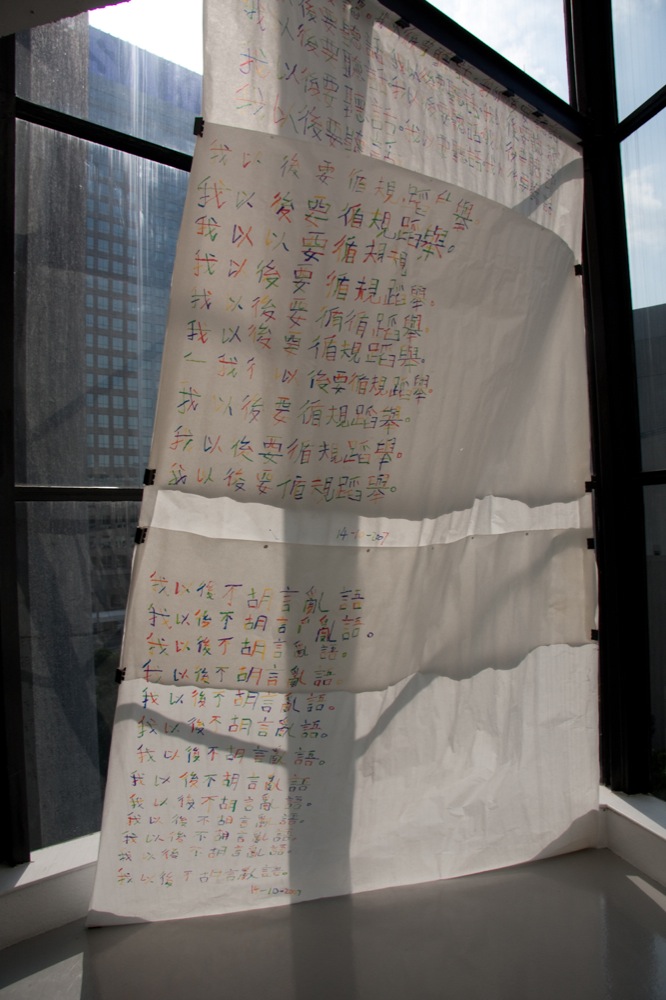 我以後要聽話
我以後要聽話
我以後要聽話。我以後要聽話
我以後要聽話。我以後要聽話
我以後要循規蹈舉
我以後要循規蹈舉。
我以以要循規
我以後要循規蹈舉。
我以後要循循蹈舉。
我以後要循規蹈舉。
我以後要循規蹈舉。
我以後要循規蹈舉。
我以後要循規蹈舉。
我以後要循規蹈舉。
我以後不胡言亂語
我以後不胡言亂語。
我以後不胡言亂語。
我以後不胡言亂語。
我以後不胡言亂語。
我以後不胡言亂語。
我以後不胡言亂語。
我以後不胡言亂語
我以後不胡言亂語。
我以後不胡言亂語。
我以後不胡言亂語。
我以後不胡言亂語。
我以後不胡言亂語。